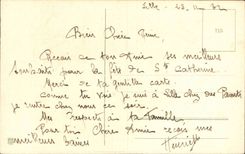 Lille - 23 . 11
Bien Chère Amie,
Reçois de ton Amie ses meilleurs
souhaits pour la fête de Ste Catherine.
Merci de ta gentille carte
comme tu vois je suis à Lille chez des Parents
je rentre chez nous ce soir.
Mes respects à ta famille,
Pour toi Chère Amie reçois mes
meilleurs baisers
Henriette